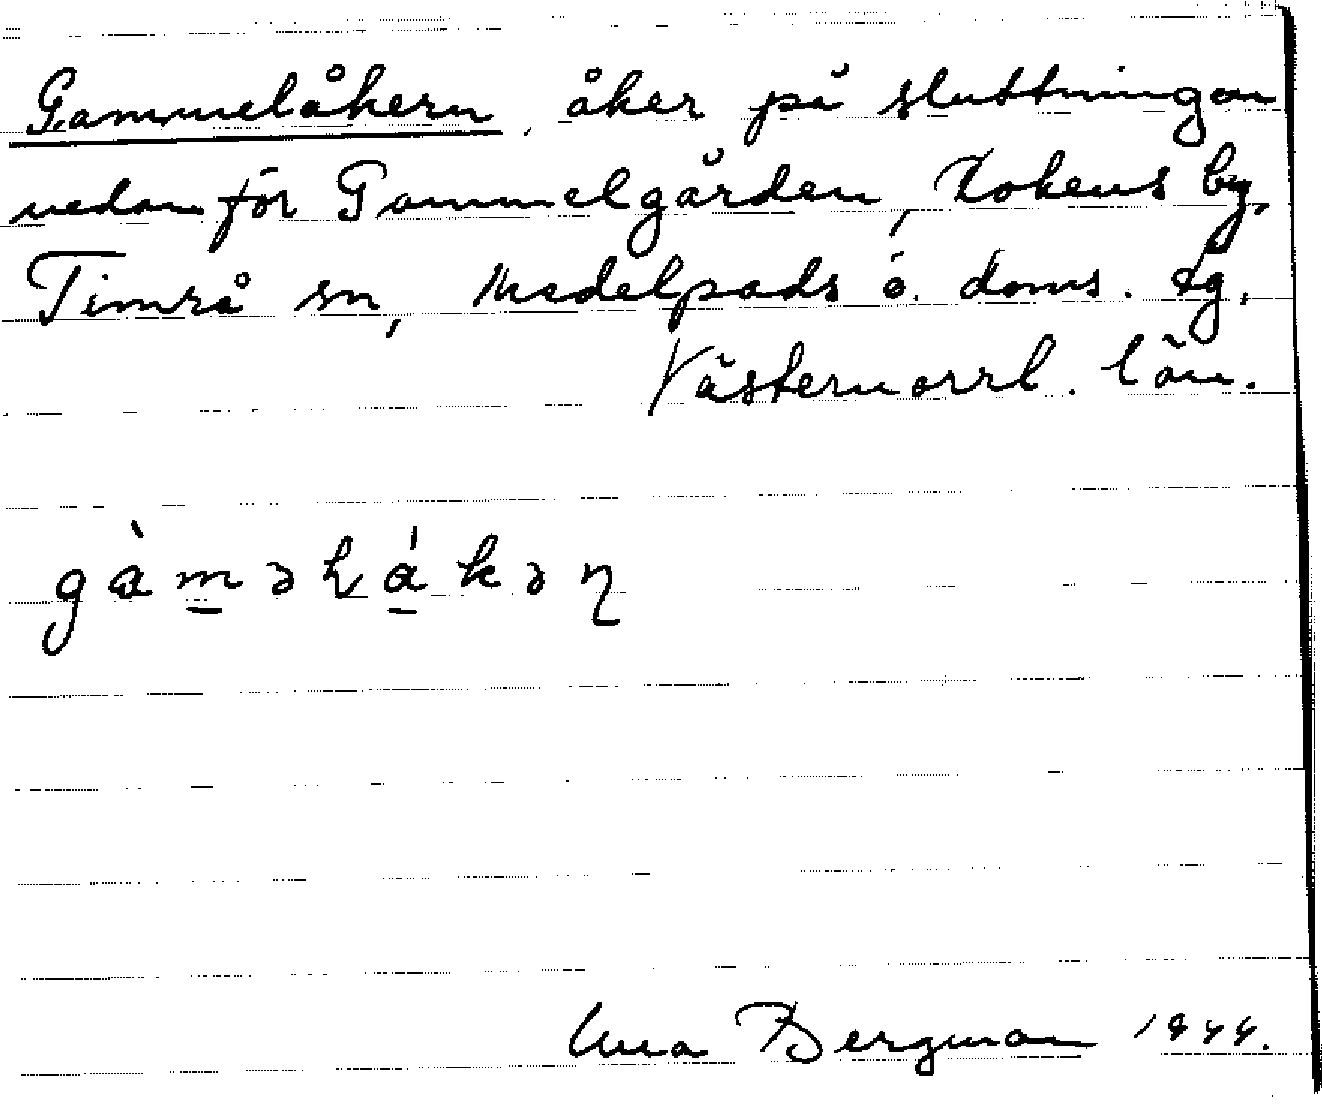 Gammelåkern, åker på sluttningen
nedanför Gammelgården, Kokens by,
Timrå sn, Medelpads ö. doms. tg,
Västernorrl. län.
gàməɫákəɳ
Bergman 1944.